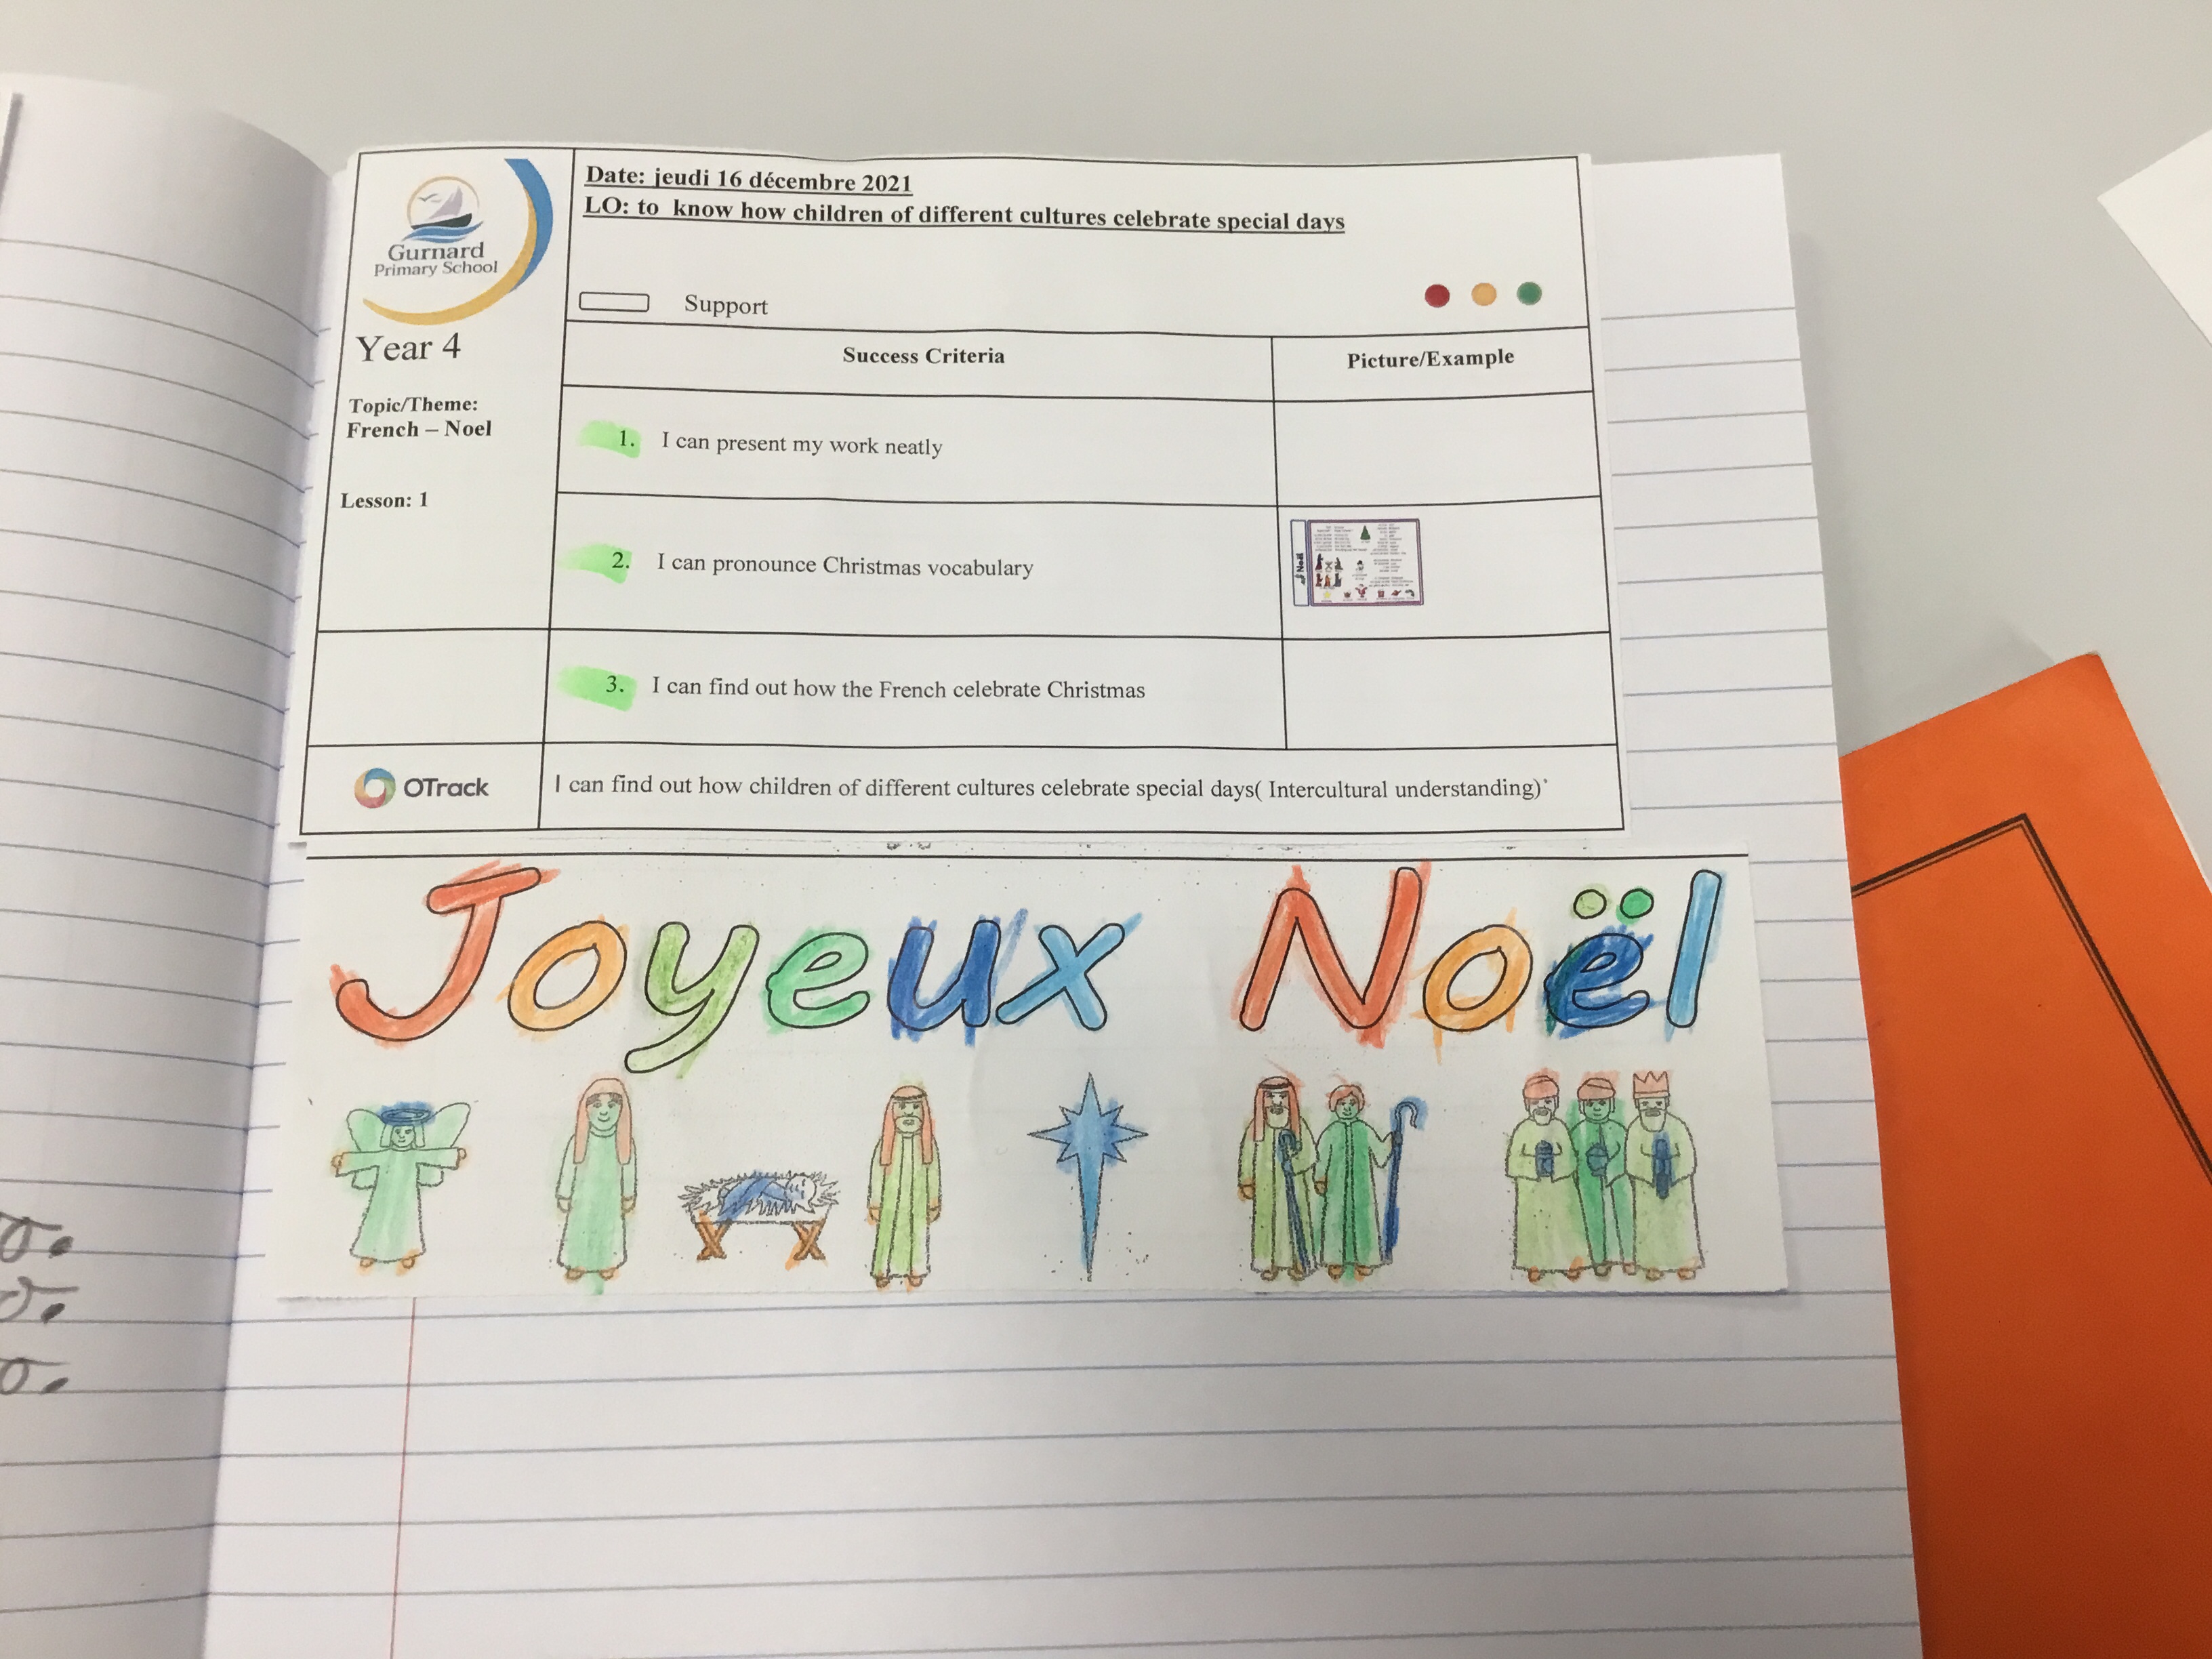 Gurnard
Primary School
Year 4
Topic/Theme:
French – Noel
Lesson: 1
Date: jeudi 16 décembre 2021
LO: to know how children of different cultures celebrate special days
Support
Success Criteria
Picture/Example
1. I can present my work neatly
2. I can pronounce Christmas vocabulary
Noël
3. I can find out how the French celebrate Christmas
OTrack
I can find out how children of different cultures celebrate special days( Intercultural understanding)
Joyeux Noël